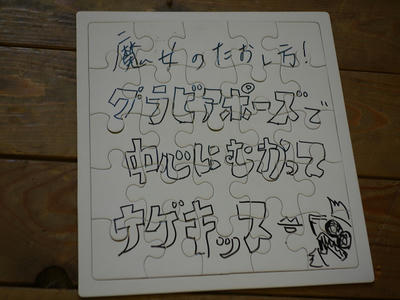 魔女のたおし方!
グラビアポーズで
中心にむかって
ウゲキッスー